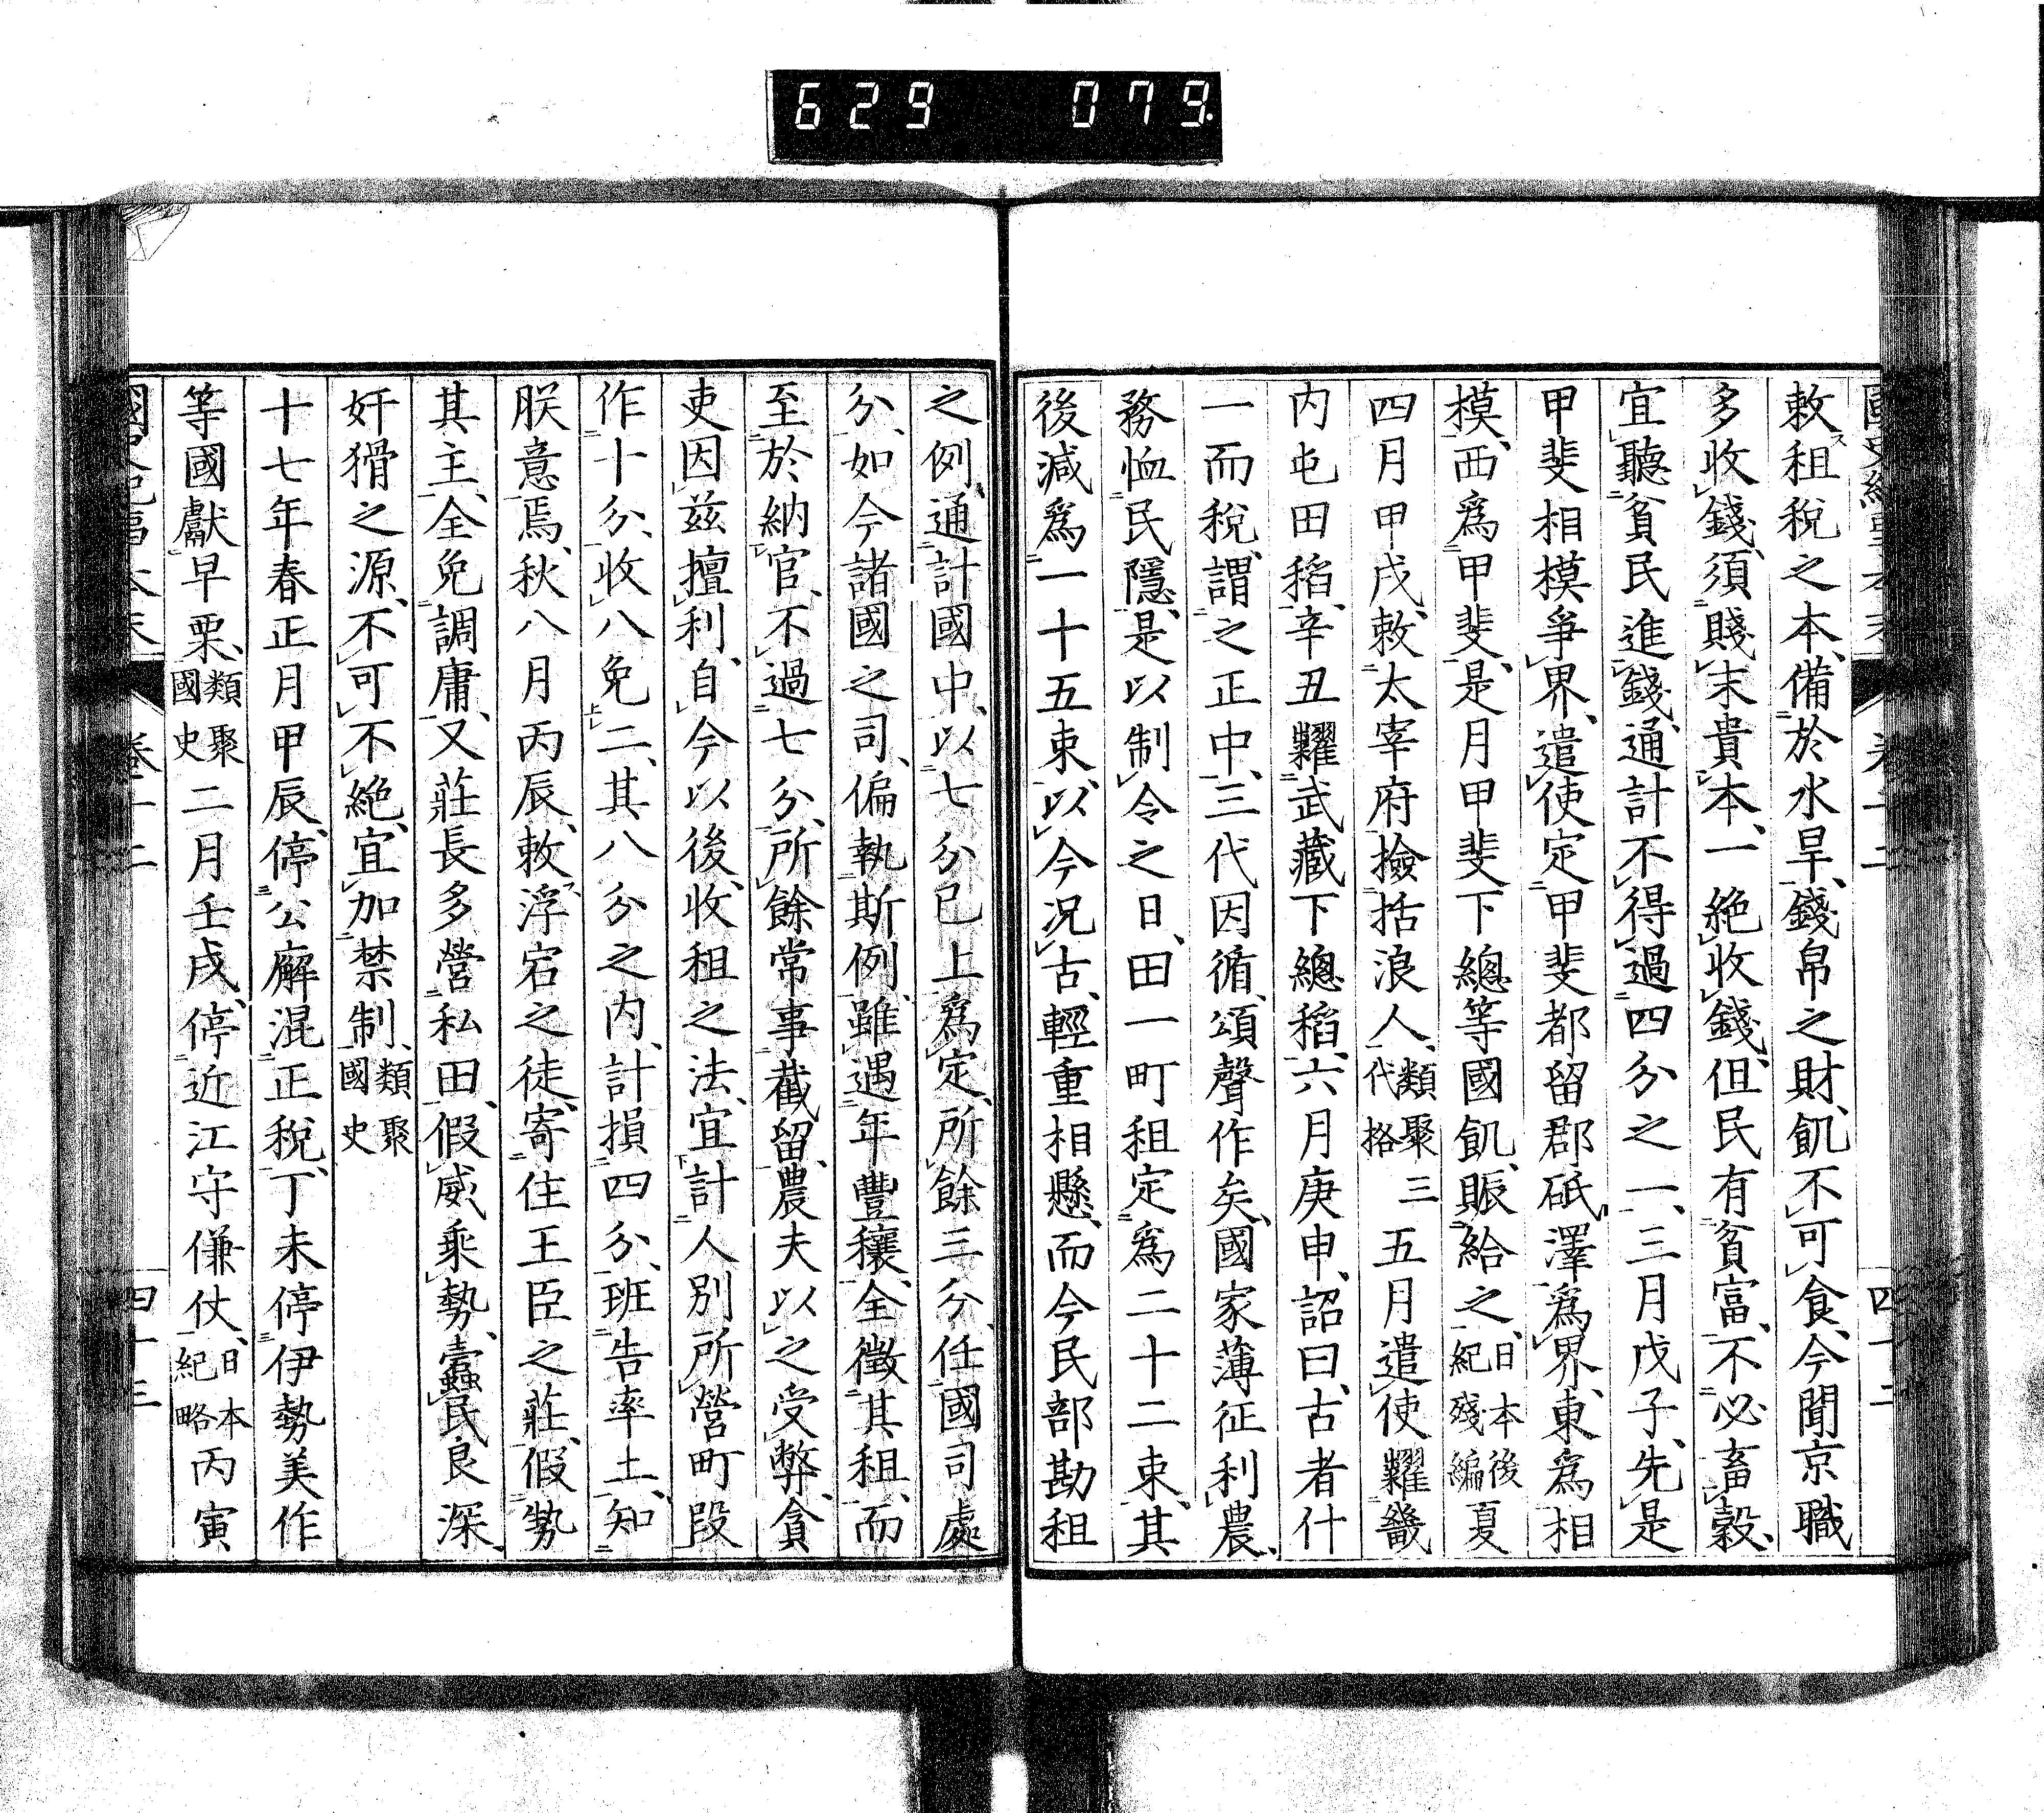 629 079
敕租税之本、備於水旱、錢帛之財、飢不可食、今聞京職
多收錢、須賤末貴本、一絶收錢、但民有貧富、不必畜穀、
宜聽貧民進錢、通計不得過四分之一、三月戊子、先是
甲斐相模爭界、遣使定甲斐都留郡砥澤爲界、東爲相
模、西爲甲斐、是月甲斐下總等國飢、賑給之、日本後紀殘編夏
四月甲戌、敕太宰府撿括浪人、類聚三代格五月遣使糶畿
内屯田稻、辛丑糶武藏下總稻、六月庚申、詔曰、古者什
一而税、謂之正中、三代因循、頌聲作矣、國家薄征利農、
務恤民隱、是以制令之日、田一町租定爲二十二束、其
後減爲一十五束、以今况古、輕重相懸、而今民部勘租
之例、通計國中、以七分已上爲定、所餘三分、任國司處
分、如今諸國之司、偏執斯例、雖遇年豐穰、全徴其租、而
至於納官、不過七分、所餘常事截留、農夫以之受弊、貪
吏因茲擅利、自今以後、收租之法、宜計人別所營町段
作十分、收八免二、其八分之内、計損四分、班告率土、知
朕意焉、秋八月丙辰、敕浮宕之徒、寄住王臣之莊、假勢
其主、全免調庸、又莊長多營私田、假威乘勢、蠹民良深、
奸猾之源、不可不絶、宜加禁制、類聚國史
十七年春正月甲辰、停公廨混正税、丁未停伊勢美作
等國獻早栗、類聚國史二月壬戌、停近江守傔仗、日本紀略丙寅
四十三